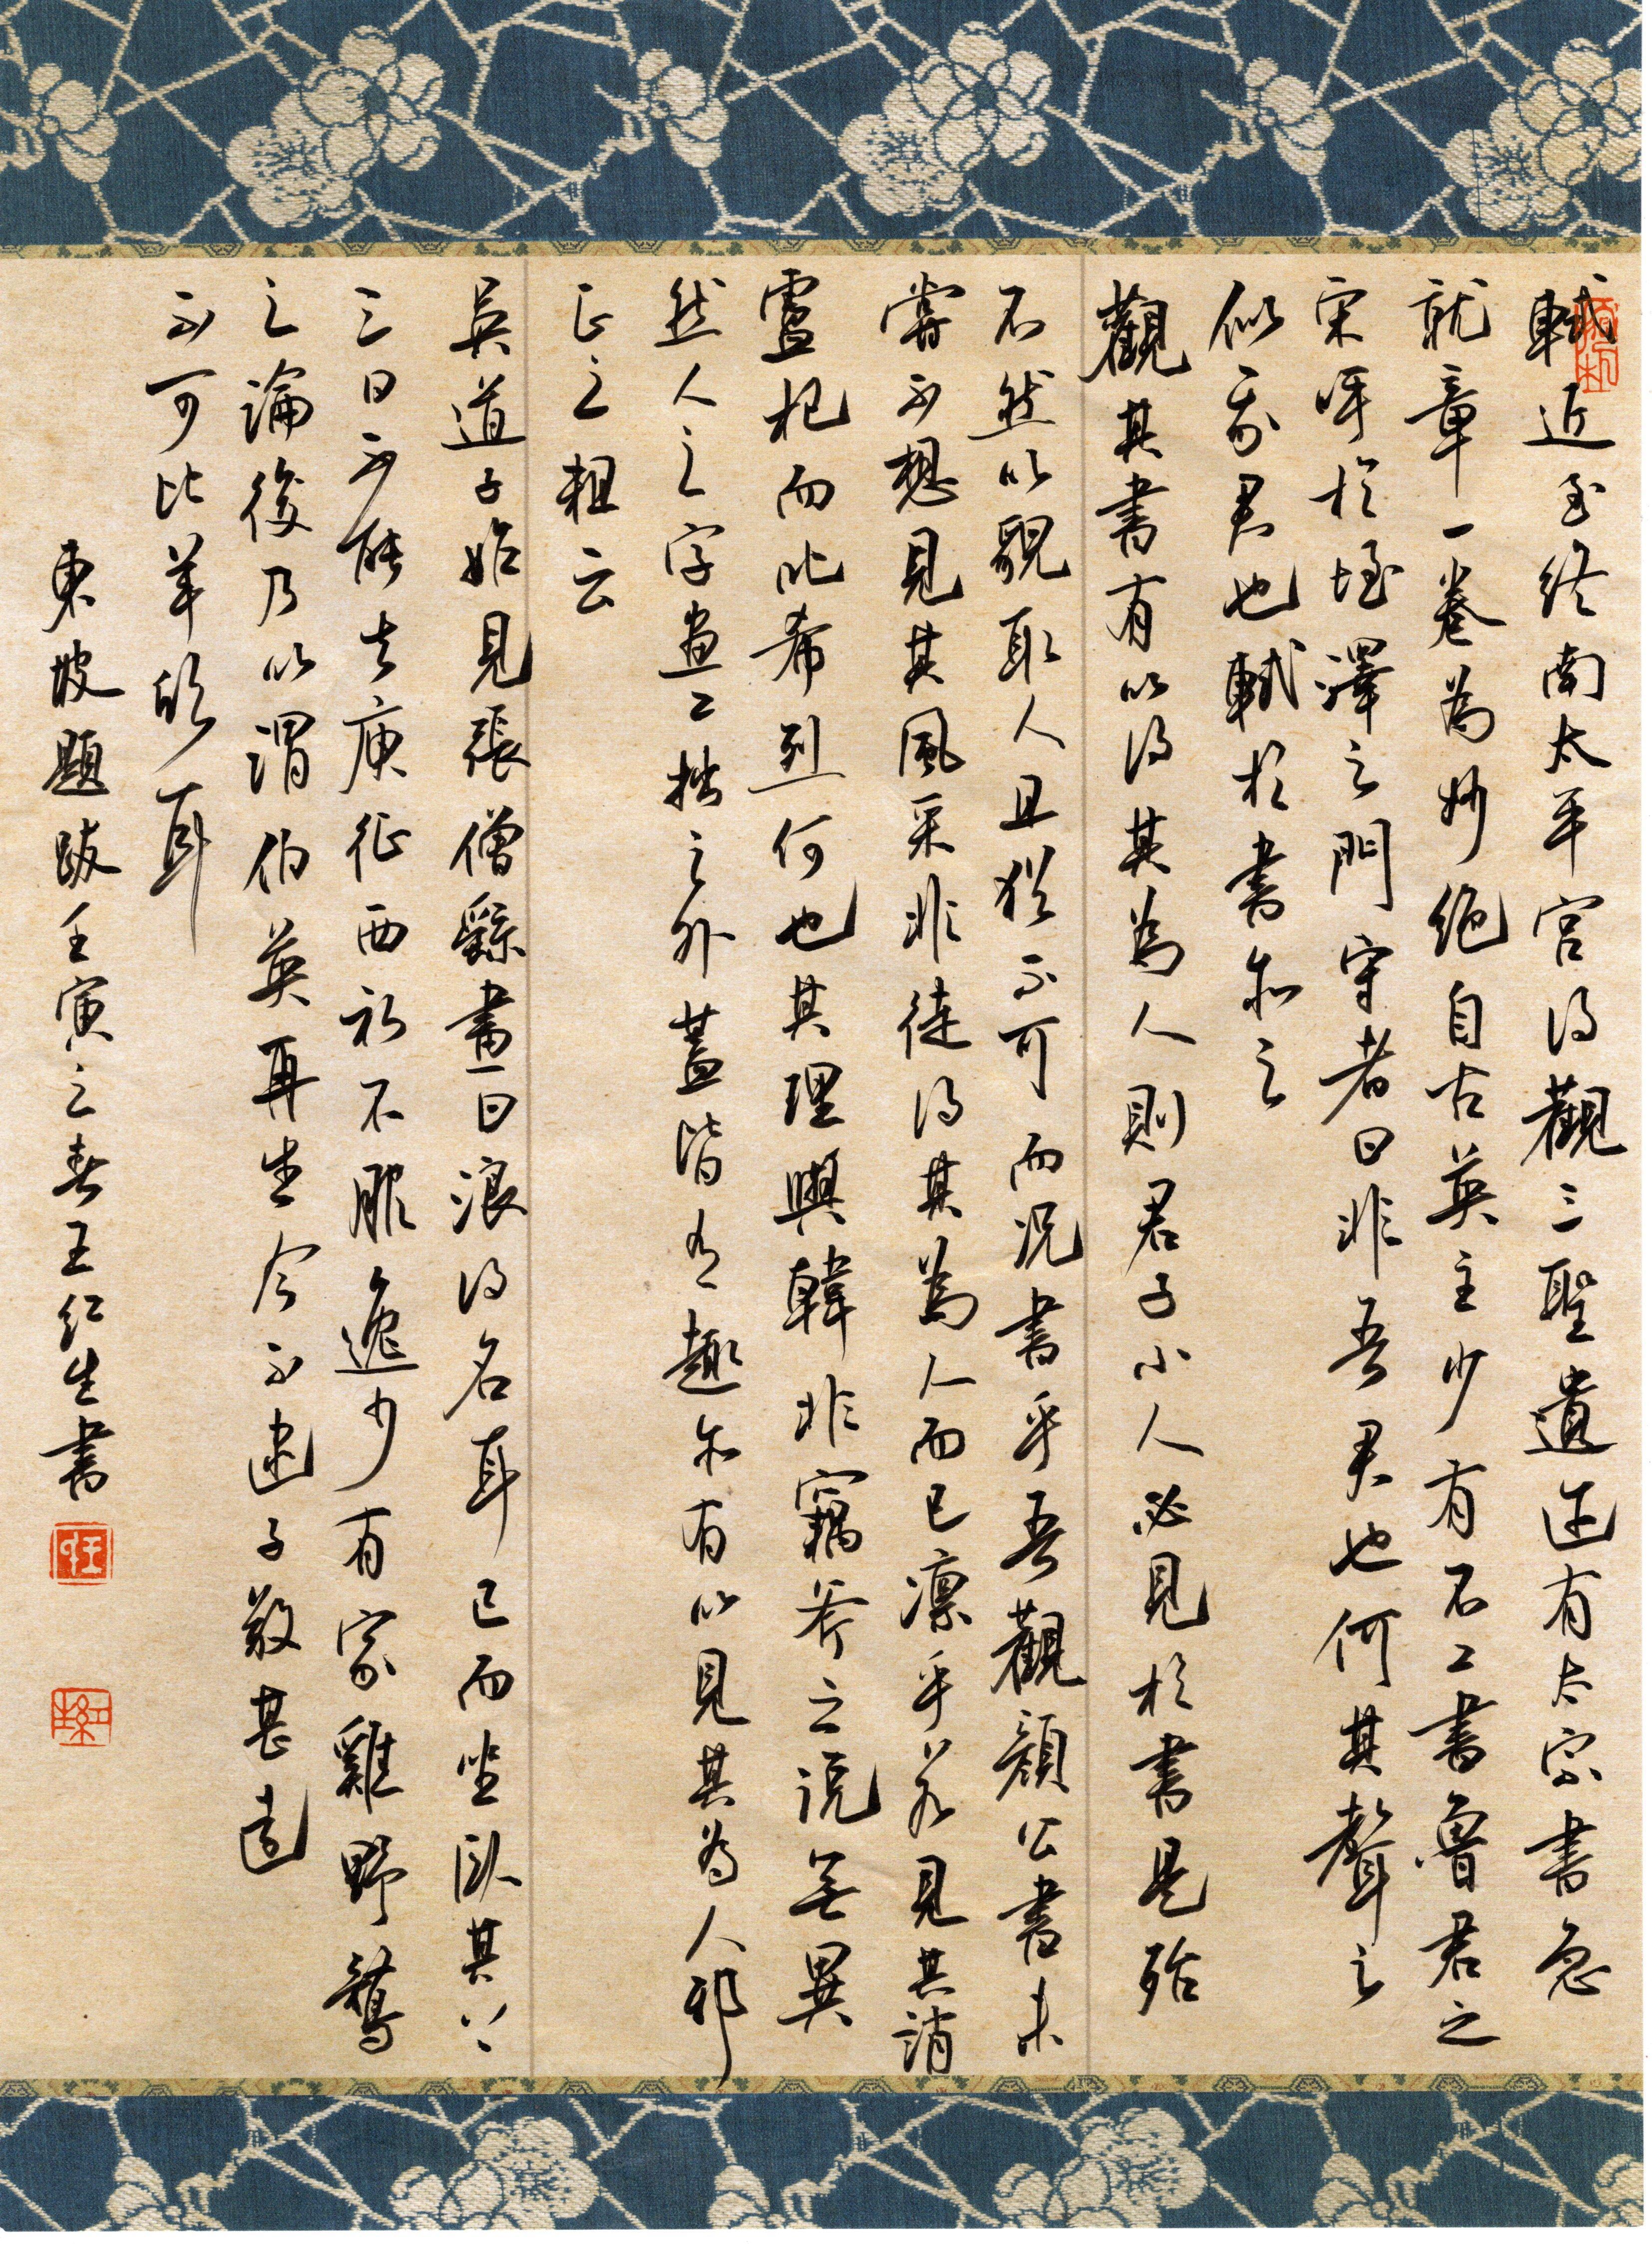 軾近至終南太平宮得觀三聖遺迹有太宗書急
就章一卷為妙絕自古英主少有不工書魯君之
宋呼於垤澤之門守者曰非吾君也何其聲之
似我君也軾於書亦云
觀其書有以得其為人則君子小人必見於書是殆
不然以貌取人且猶不可而況書乎吾觀顏公書未
嘗不想見其風采非徒得其為人而已凜乎若見其誚
盧杞而叱希烈何也其理與韓非竊斧之說無異
然人之字畫工拙之外蓋皆有趣亦有以見其為人邪
正之粗云
吳道子始見張僧繇畫曰浪得名耳已而坐臥其下
三日不能去庾征西初不服逸少有家雞野鶩
之論後乃以謂伯英再生今不逮子敬甚遠
正可比羊欣耳
東坡題跋壬寅之春王紅生書